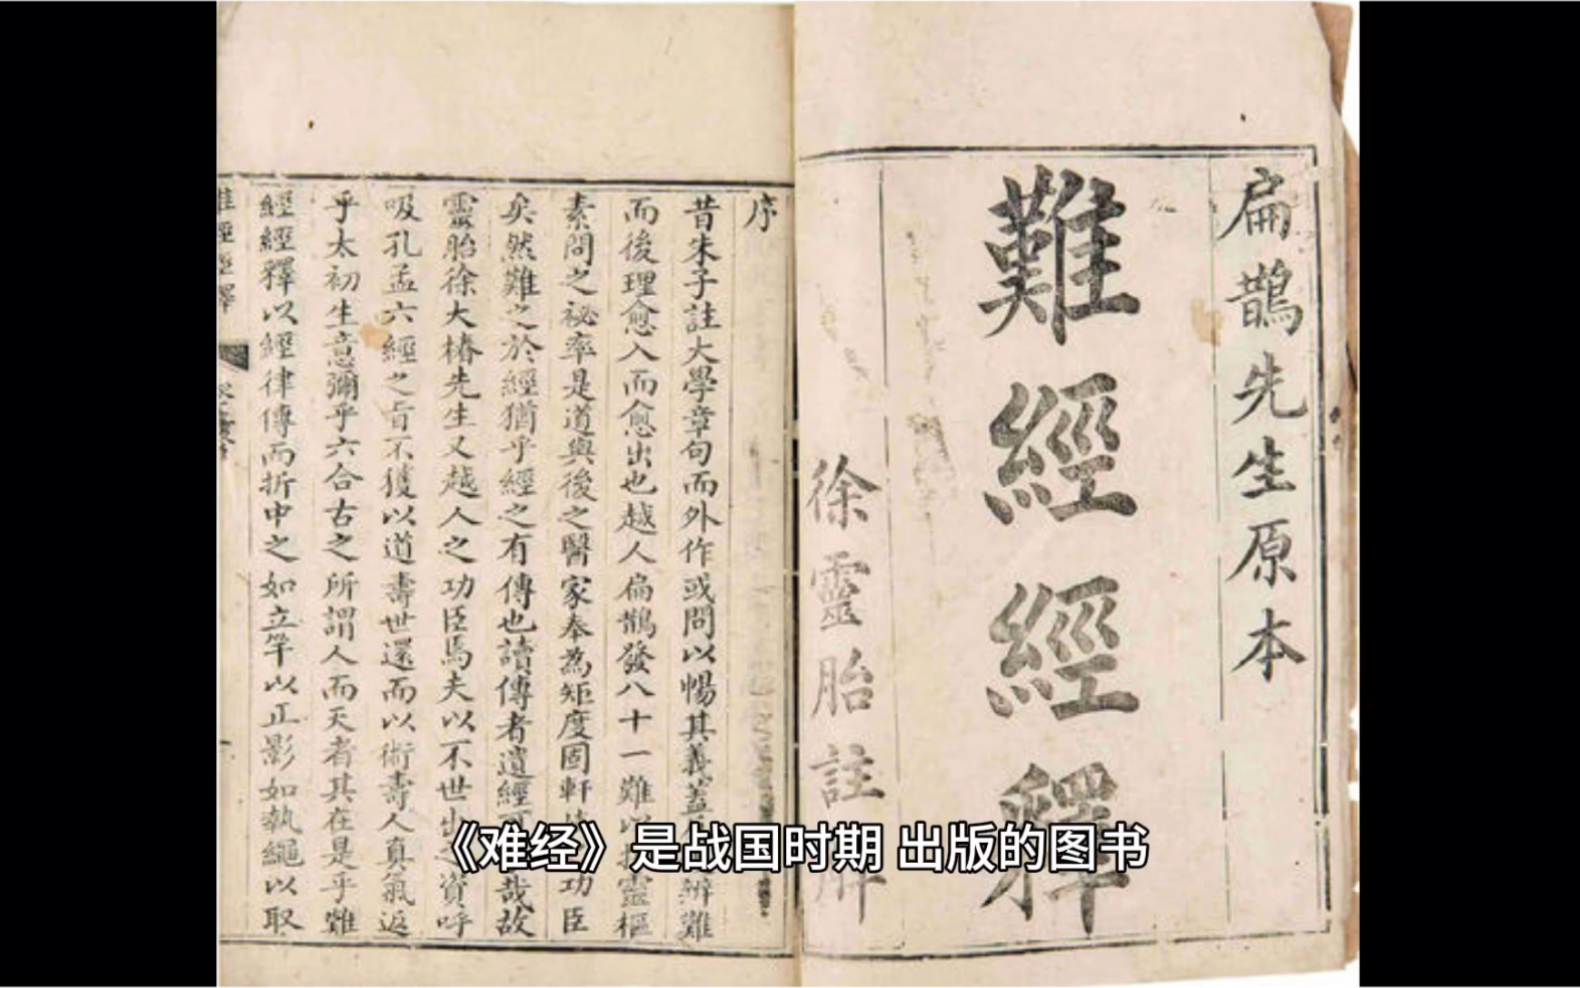 扁鵲先生原本
難經經釋
徐靈胎註解
序
昔朱子註大學章句而外作或問以暢其義蓋辨難
而後理愈入而愈出也越人扁鵲發八十一難以靈樞
素問之祕率是道與後之醫家奉為矩度固軒功臣
矣然難之於經猶乎經之有傳也讀傳者遺經可哉故
靈胎徐大椿先生又越人之功臣焉夫以不世出之資呼
吸孔孟六經之旨不獲以道壽世還而以術壽人真氣返
乎太初生意彌乎六合古之所謂人而天者其在是乎難
經經釋以經律傳而折中之如立竿以正影如執繩以取
難經經釋
《难经》是战国时期 出版的图书